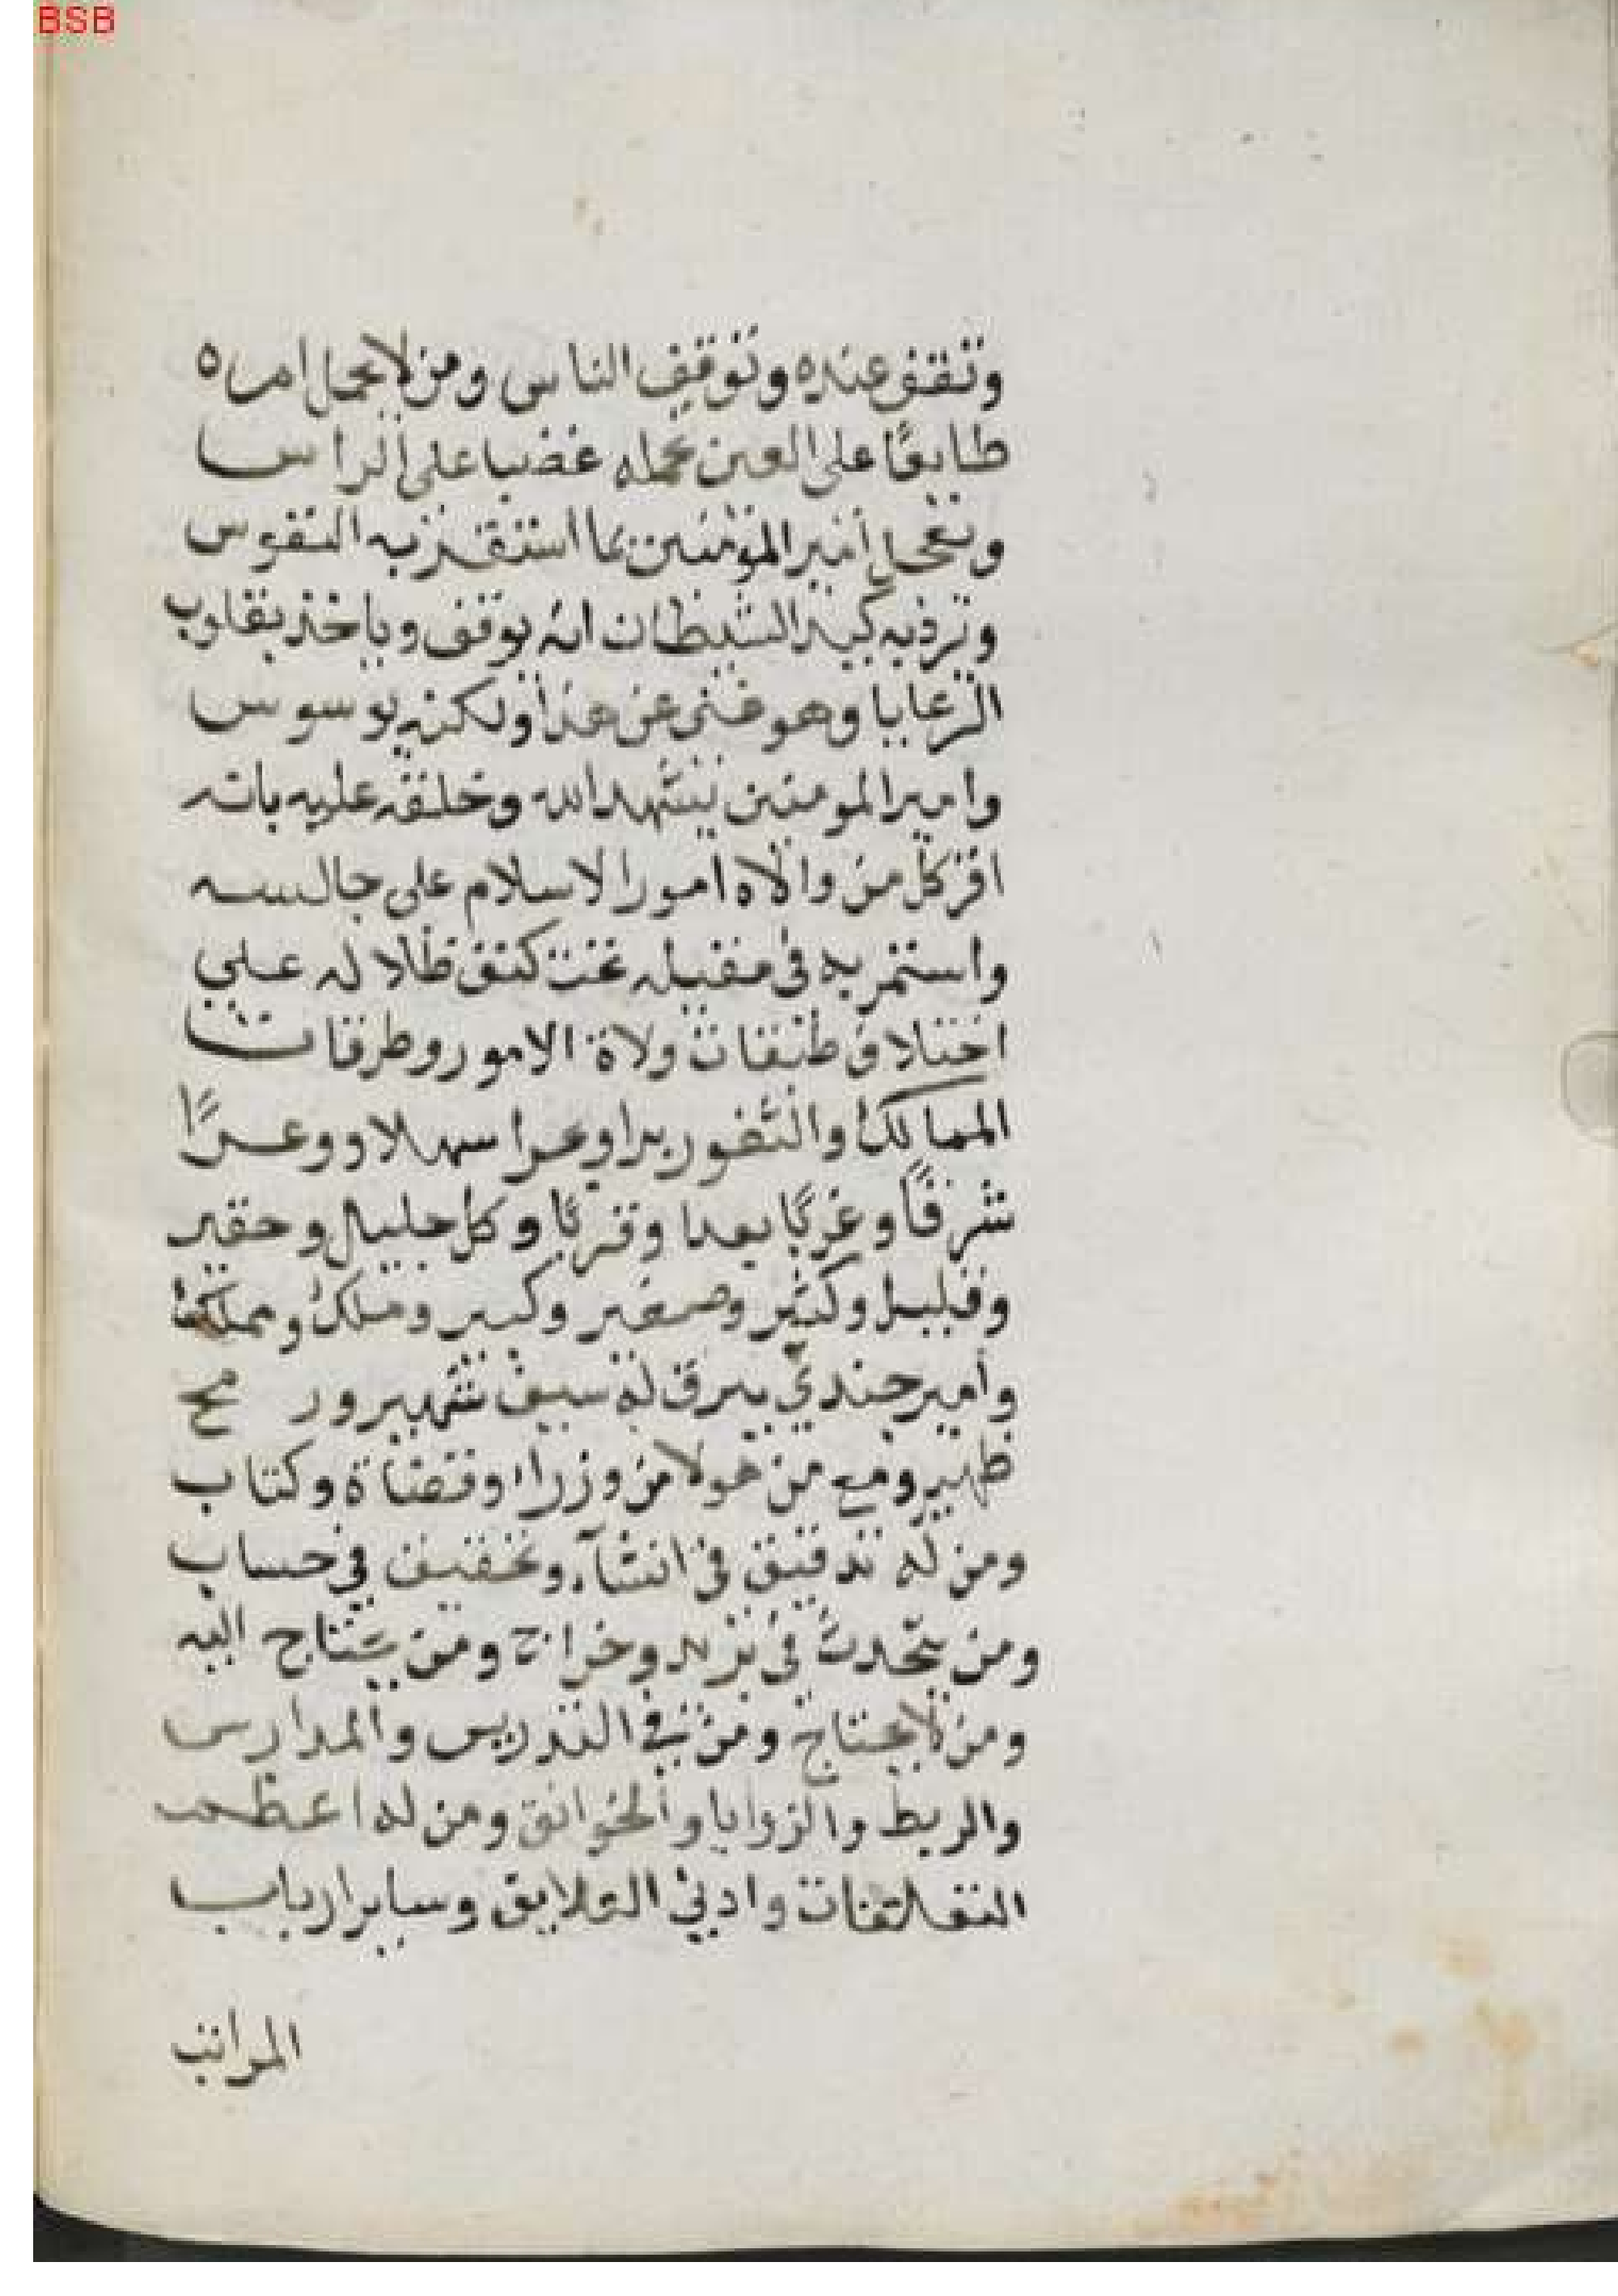 BSB
وتقف عنده وتوقف الناس ومن لا يحمل امره
طايعًا على العين يحمله غضبا على الراس
ويعجل امير المؤمنين بما استقر به النفوس
وترد به كيد الشيطان انه يوقف وياخذ بقلوب
الرعايا وهو غني عن هذا ولكنه يوسوس
وامير المومنين يشهد الله وخلقه عليه بانه
اقر كل من والاه امور الاسلام على جالسه
واستمر به في مقيله تحت كنف ظلاله على
اختلاف طبقات ولاة الامور وطرفات
الممالك والثغور برا وبحرا سهلا ووعرًا
شرقًا وغربًا بعدا وقربًا وكل جليل وحقير
وقليل وكثير وصغير وكبير وملك ومملك
وامير جندي يبرق له سيف شهير ورمح
ظهير ومع من هولا من وزراء وقضاة وكتاب
ومن له تدقيق في انشآء وتخفيف في حساب
ومن يتحدث في بريد وخراج ومن يحتاج اليه
ومن لا يحتاج ومن في التدريس والمدارس
والربط والزوايا والخوانق ومن له اعظم
التعلقات وادني العلايق وساير ارباب
المراتب